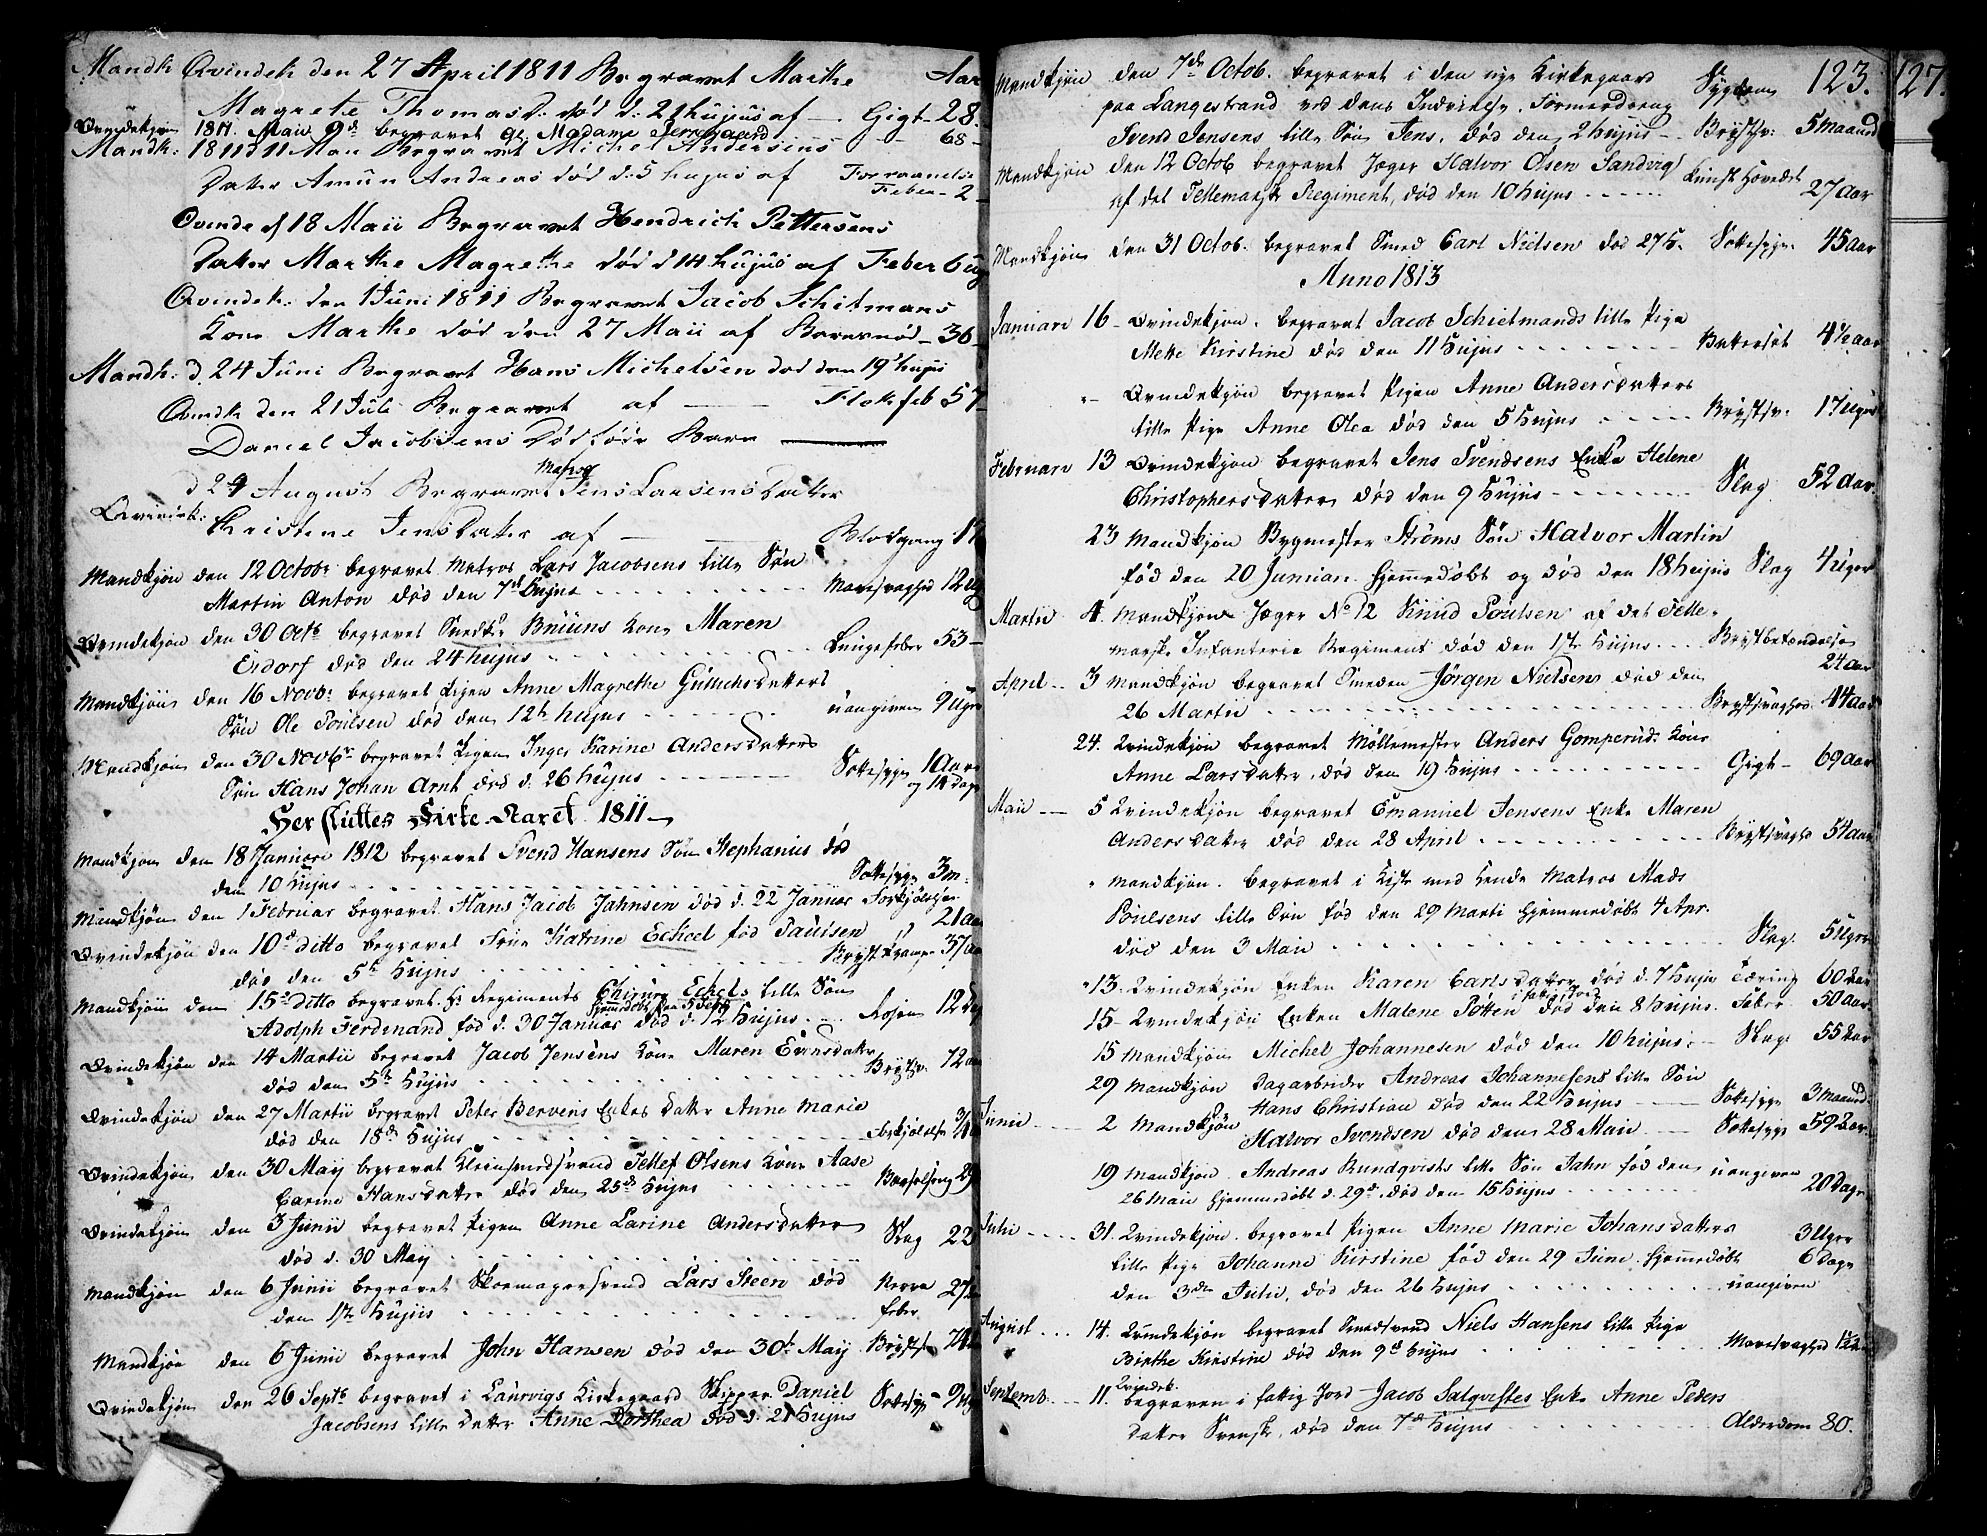 Mandk Qvindek den 27 April 1811 Begravet Marthe Aar
Magrete Thomasd. død d: 21 hujus af — Gigt — 28.
Qvindekjøn 1811. Maii 9de begravet gl. Madame 68 —
Mandk: 1811 d 11 Maii Begravet Michel Andersens
Datter Amun Andreas død d: 5 hujus af Forraadnelse
Feber — 2 —
Qvinde d 18 Maii Begravet Hendrich Pettersens
Datter Marthe Magrethe død d 14 hujus af Feber 6 ug
Qvindek: den 1 Juni 1811 Begravet Jacob Schitmans
Kone Marthe død den 27 Maii af Barnnød — 36
Mandk: d. 24 Juni Begravet Hans Michelsen død den 19 hujus
Qvindk den 21 Juli Begravet af — Flokfeb 57
Daniel Jacobsens Dødføde Barn
d 24 August Begravet Jens Larsens Datter
Qvindk: Christene Jensdatter af — Blodgang 17
Mandkjøn den 12 Octobr begravet Matros Lars Jacobsens lille Søn
Martin Anton død den 7de hujus Mavesvaghed 12
Qvindekjøn den 30 Octb begravet Snedker Bruuns Kone Maren
Eidorf død den 24 hujus Lungefeber 53 —
Mandkjøn den 16 Novbr begravet Pigen Anne Magrethe Gullichsdatters
Søn Ole Poulsen død den 12te hujus uangiven 9 Uger
Mandkjøn den 30 Novbr begravet Pigen Inger Karine Andersdatters
Søn Hans Johan Arnt død d. 26 hujus Sottesyge 1 Aar
og 14 Dage
Her sluttes Kirke-Aaret 1811
Mandkjøn den 18 Januari 1812 begravet Svend Hansens Søn Stephanius død
den 10 hujus Sottesyge 3 m.
Mandkjøn den 1 Februar begravet Hans Jacob Jahnsen død d. 22 Januar Forkjølelse
21 aar
Qvindekjøn den 10de ditto begravet Frue Katrine Eckeel fød Paulsen
død den 5te hujus Brystkrampe 37 aar
Mandkjøn den 15de ditto begravet Hr Regiments Chirurg Eckels lille Søn
Adolph Ferdinand fød d. 30 Januar død d. 12 hujus Rosen 12 Dag
Qvindekjøn den 14 Martii begravet Jacob Jensens Kone Maren Evensdatter
død den 5te hujus Brystsv. 72 aar
Qvindekjøn den 27 Martii begravet Peter Bervens Enkes datter Anne Marie
død den 18de hujus Forkjølelse
Qvindekjøn den 30 May begravet Kleinsmedsvend Tellef Olsens Kone Aase
Carine Hansdatter død den 25de hujus Barselseng 29
Qvindekjøn den 3 Junii begravet Pigen Anne Larine Andersdatter
død d. 30 May Slag 22
Mandkjøn den 6 Junii begravet Skoemagersvend Lars Steen død
den 1ste hujus Nerve feber 27
Mandkjøn den 6 Junii begravet John Hansen død den 30te May Brystsv 74
Qvindekjøn den 26 Septb begravet i Laurvigs Kirkegaard Skipper Daniel
Jacobsens lille datter Anne Dorthea død d. 21 hujus Sottesyge
123. 127.
Mandkjøn den 7de Octob. begravet i den nye Kirkegaard Sygdom
paa Langestrand ved dens Indvielse, Formerdreng
Svend Jensens lille Søn Jens, død den 2 hujus Brystsv: 5 Maaned
Mandkjøn den 12 Octob begravet Jæger Halvor Olsen Sandvig
af det Tellemarkske Regiment, død den 10 hujus 27 aar
Mandkjøn den 31 Octob. begravet Smed Carl Nielsen død 27 h. Sottesyge 45 aar
Anno 1813
Januari 16 — Qvindekjøn. begravet Jacob Schietmands lille Pige
Mette Kirstine død den 11 hujus 4½ aar
" — Qvindekjøn begravet Pigen Anne Andersdatters
lille Pige Anne Olea død den 5 hujus Brystsv: 17 Uger
Februari 13 Qvindekjøn begravet Jens Svendsens Enke Helene
Christophersdatter død den 9 hujus Slag 52 aar.
23 Mandkjøn Bygmester Strøms Søn Halvor Martin
fød den 20 Januar. hjemmedøbt og død den 18 hujus Slag 4 Uger
Martii 4. Mandkjøn Jæger No 12 Knud Poulsen af det Telle-
marske Infanterie Regiment død den 1ste hujus Brystbetændelse
24 aar
April 3 Mandkjøn begravet Smeden Jørgen Nielsen død den
26 Martii Brystsvaghed 44 aar
24. Qvindekjøn begravet Møllemester Anders Gomperuds Kone
Anne Larsdatter, død den 19 hujus Gigt — 69 aar
Maii 5 Qvindekjøn begravet Emanuel Jensens Enke Maren
Andersdatter død den 28 April Brystsvaghd 54 aar
" Mandkjøn. begravet i Kiste med hende Matros Mads
Poulsens lille Søn fød den 29 Marti hjemmedøbt 4 Apr.
død den 3 Maii Slag. 5 Uger
13. Qvindekjøn Enken Karen Carlsdatter død d. 7 hujus Tæring 60 Aar
15 — Qvindekjøn Enken Malene Potten død den 8 hujus. Feber 50 aar
15 Mandkjøn Michel Johannesen død den 10 hujus: — Slag 55 Aar
29 Mandkjøn Dagarbeider Andreas Johannesens lille Søn
Hans Christian død den 22 hujus Sottesyge 3 Maaned
Junii 2 Mandkjøn Halvor Svendsen død den 28 Maii Sottesyge 59 Aar
19 Mandkjøn. Andreas Rundqvists lille Søn Jahn fød den uangiven
26 Maii hjemmedøbt d. 29de, død den 15 hujus 20 Dage
Julii 31. Qvindekjøn. begravet Pigen Anne Marie Johansdatters 3 Uger
lille Pige Johanne Kirstine fød den 29 Juni, hjemmedøbt 6 Dage
den 3den Julii, død den 26 hujus uangiven
August 14. Qvindekjøn begravet Smedsvend Niels Hansens lille Pige
Birthe Kirstine død den 9de hujus Mavesvaghed
Septemb. 11. Qvindek. begraven i fattig Jord Jacob Salqvistes Enke Anne Peders
datter Svensk, død den 7de hujus Alderdom 80.